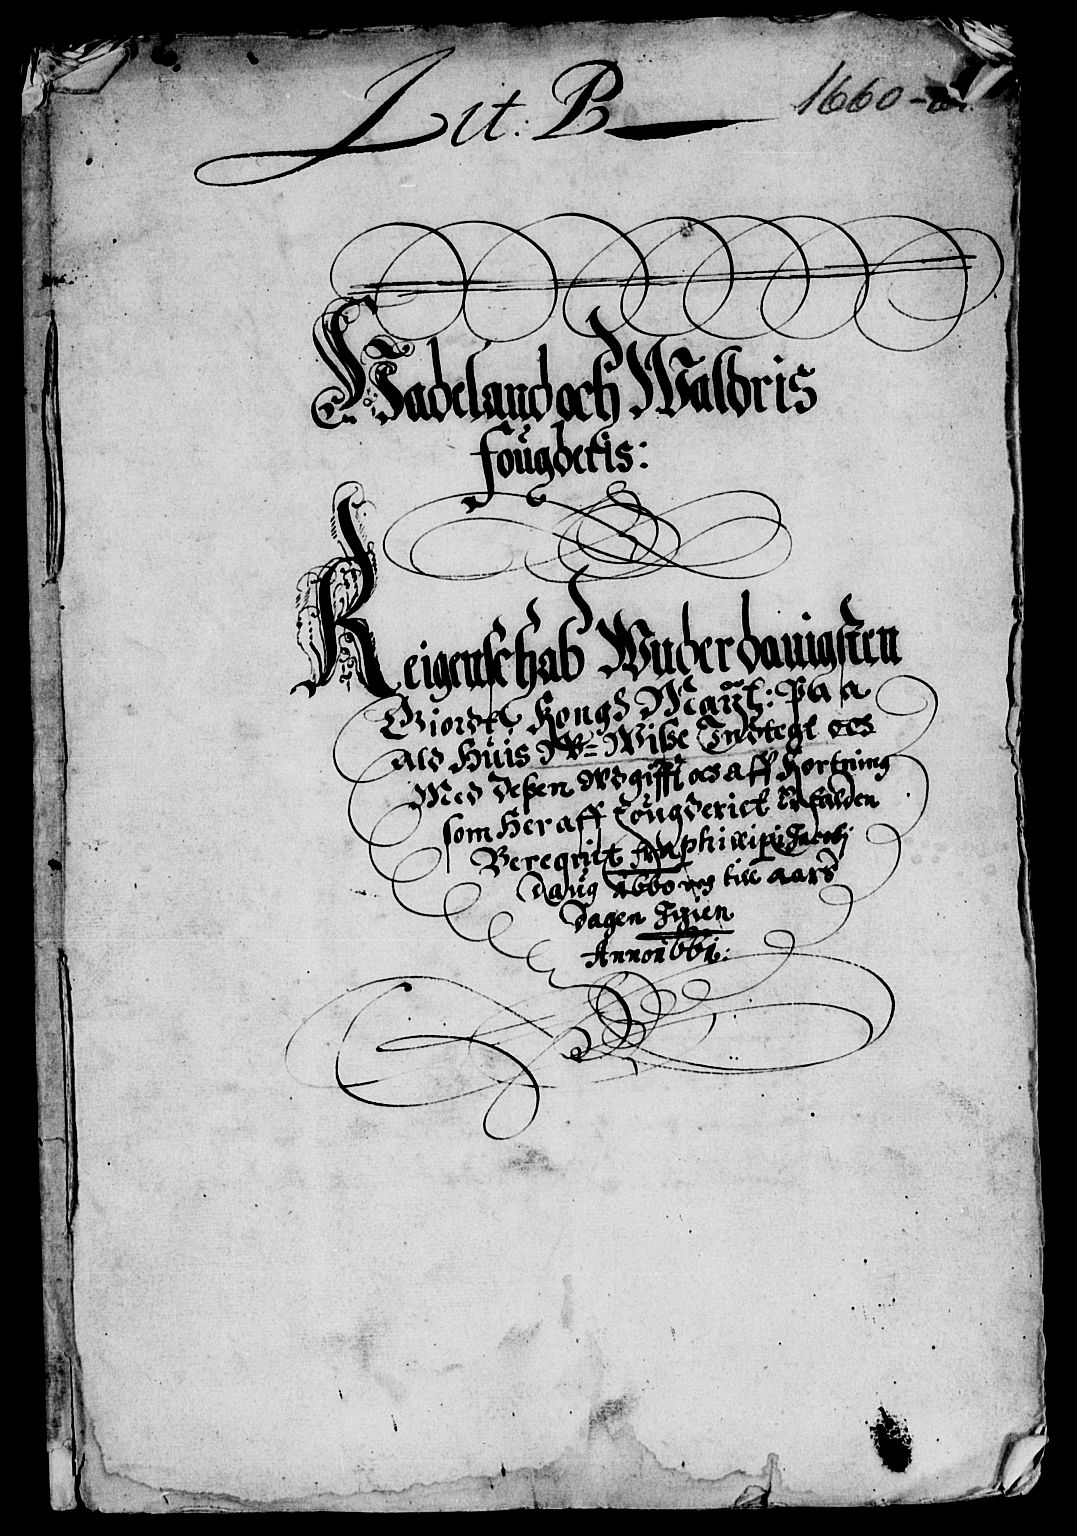 Lit: B
1660-61.
Hadeland och Waldris
fougderis:
Reigenschab Wnderdanigsten
Giordt Kongl Maytt: Paa
Ald Huis Wisse Indtegt oes
Med Dessen Wdgifft oes aff Kortning
som Her aff fougderiet Er falden
Beregnit fra phillipi Jacobj
daug 1660 og till aars
dagen Igien
Anno 1661: